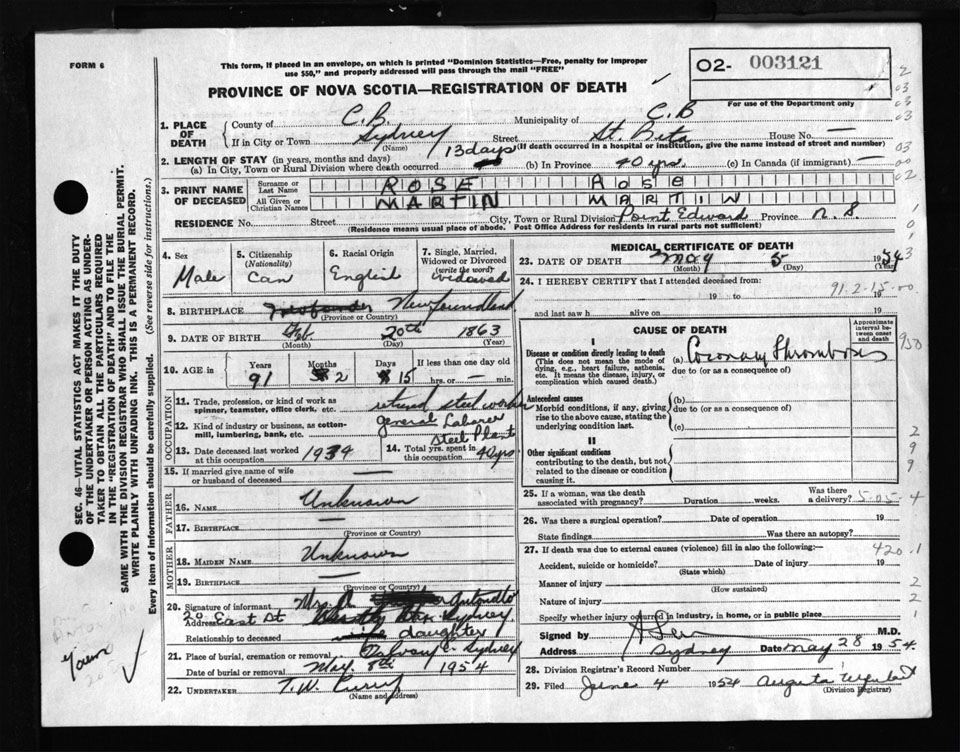 FORM 6
This form, if placed in an envelope, on which is printed "Dominion Statistics—Free, penalty for improper
use $50," and properly addressed will pass through the mail "FREE"
O2- 003121
PROVINCE OF NOVA SCOTIA—REGISTRATION OF DEATH
For use of the Department only
1. PLACE OF DEATH
County of C.B. Municipality of C.B
If in City or Town Sydney Street St. Rita House No. —
(Name) (If death occurred in a hospital or institution, give the name instead of street and number)
2. LENGTH OF STAY (in years, months and days)
(a) In City, Town or Rural Division where death occurred 13 days (b) In Province 40 yrs. (c) In Canada (if immigrant) —
3. PRINT NAME OF DECEASED
Surname or Last Name ROSE Rose
All Given or Christian Names MARTIN MARTIN
RESIDENCE No. Street City, Town or Rural Division Point Edward Province N. S.
(Residence means usual place of abode. Post Office Address for residents in rural parts not sufficient)
4. Sex Male
5. Citizenship (Nationality) Can
6. Racial Origin English
7. Single, Married, Widowed or Divorced (write the word) Widowed
8. BIRTHPLACE Newfoundland
(Province or Country)
9. DATE OF BIRTH Feb. 20th 1863
(Month) (Day) (Year)
10. AGE in Years 91 Months 2 Days 15 If less than one day old hrs. or — min.
OCCUPATION
11. Trade, profession, or kind of work as spinner, teamster, office clerk, etc. retired steel worker
12. Kind of industry or business, as cotton-mill, lumbering, bank, etc. general Laborer Steel Plant
13. Date deceased last worked at this occupation 1939
14. Total yrs. spent in this occupation 40 yrs
15. If married give name of wife or husband of deceased —
FATHER
16. NAME Unknown
17. BIRTHPLACE —
(Province or Country)
MOTHER
18. MAIDEN NAME Unknown
19. BIRTHPLACE —
(Province or Country)
20. Signature of informant Mrs.
Address 20 East St Sydney
Relationship to deceased daughter
21. Place of burial, cremation or removal Sydney
Date of burial or removal May 8th 1954
22. UNDERTAKER T. W. Curry
(Name and Address)
MEDICAL CERTIFICATE OF DEATH
23. DATE OF DEATH May 5 1954
(Month) (Day) (Year)
24. I HEREBY CERTIFY that I attended deceased from:
19 to 19
and last saw h alive on 19
91.2-15-00
CAUSE OF DEATH
Approximate interval between onset and death
I
Disease or condition directly leading to death
(This does not mean the mode of dying, e.g., heart failure, asthenia, etc. It means the disease, injury, or complication which caused death.)
(a) Coronary Thrombosis
due to (or as a consequence of)
Antecedent causes
Morbid conditions, if any, giving rise to the above cause, stating the underlying condition last.
(b)
due to (or as a consequence of)
(c)
II
Other significant conditions
contributing to the death, but not related to the disease or condition causing it.
25. If a woman, was the death associated with pregnancy? Duration weeks. Was there a delivery?
5-05-4
26. Was there a surgical operation? Date of operation 19
State findings Was there an autopsy?
27. If death was due to external causes (violence) fill in also the following:—
420.1
Accident, suicide or homicide? Date of injury 19
(State which)
Manner of injury
(How sustained)
Nature of injury
Specify whether injury occurred in industry, in home, or in public place
Signed by M.D.
Address Sydney Date May 28 1954
28. Division Registrar's Record Number
29. Filed June 4 1954 Augusta
(Division Registrar)
SEC. 46—VITAL STATISTICS ACT MAKES IT THE DUTY
OF THE UNDERTAKER OR PERSON ACTING AS UNDER-
TAKER TO OBTAIN ALL THE PARTICULARS REQUIRED
IN THE "REGISTRATION OF DEATH" AND TO FILE THE
SAME WITH THE DIVISION REGISTRAR WHO SHALL ISSUE THE BURIAL PERMIT.
WRITE PLAINLY WITH UNFADING INK. THIS IS A PERMANENT RECORD.
Every item of information should be carefully supplied. (See reverse side for instructions.)